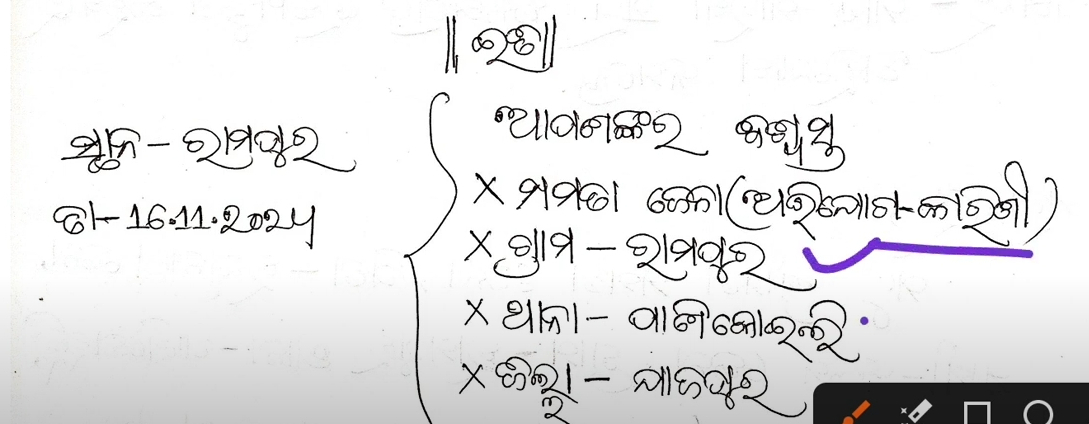 ॥ ଇତି ॥
ସ୍ଥାନ - ରାମପୁର
ତା - 16.11.2024
ଆପଣଙ୍କର ବଶ୍ୟସ୍ତ
× ମମତା ଜେନା (ଅଭିଯୋଗ-କାରିଣୀ)
× ଗ୍ରାମ - ରାମପୁର
× ଥାନା - ପାଣିକୋଇଲି
× ଜିଲ୍ଲା - ଯାଜପୁର